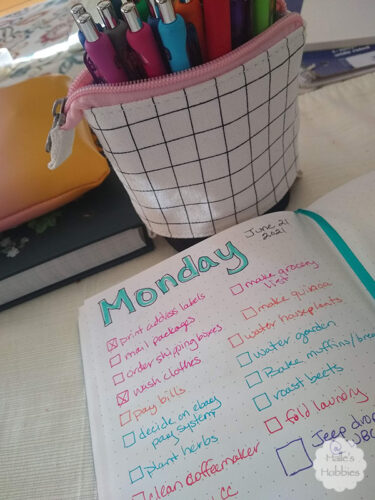 June 21
2021
Monday
print address labels
mail packages
order shipping boxes
wash clothes
pay bills
decide on ebay
pay system
plant herbs
clean coffeemaker
cc
make grocery
list
make quinoa
water houseplants
water garden
Bake muffins/brea
roast beets
fold laundry
Jeep drop
Halle's
Hobbies